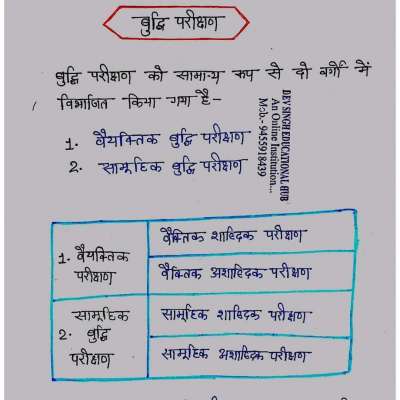 बुद्धि परीक्षण
बुद्धि परीक्षण को सामान्य रूप से दो वर्गों में
विभाजित किया गया है-
1. वैयक्तिक बुद्धि परीक्षण
2. सामूहिक बुद्धि परीक्षण
DEV SINGH EDUCATIONAL HUB
An Online Institution...
Mob.- 9455918439
1. वैयक्तिक
परीक्षण
वैक्तिक शाब्दिक परीक्षण
वैक्तिक अशाब्दिक परीक्षण
सामूहिक
2. बुद्धि
परीक्षण
सामूहिक शाब्दिक परीक्षण
सामूहिक अशाब्दिक परीक्षण